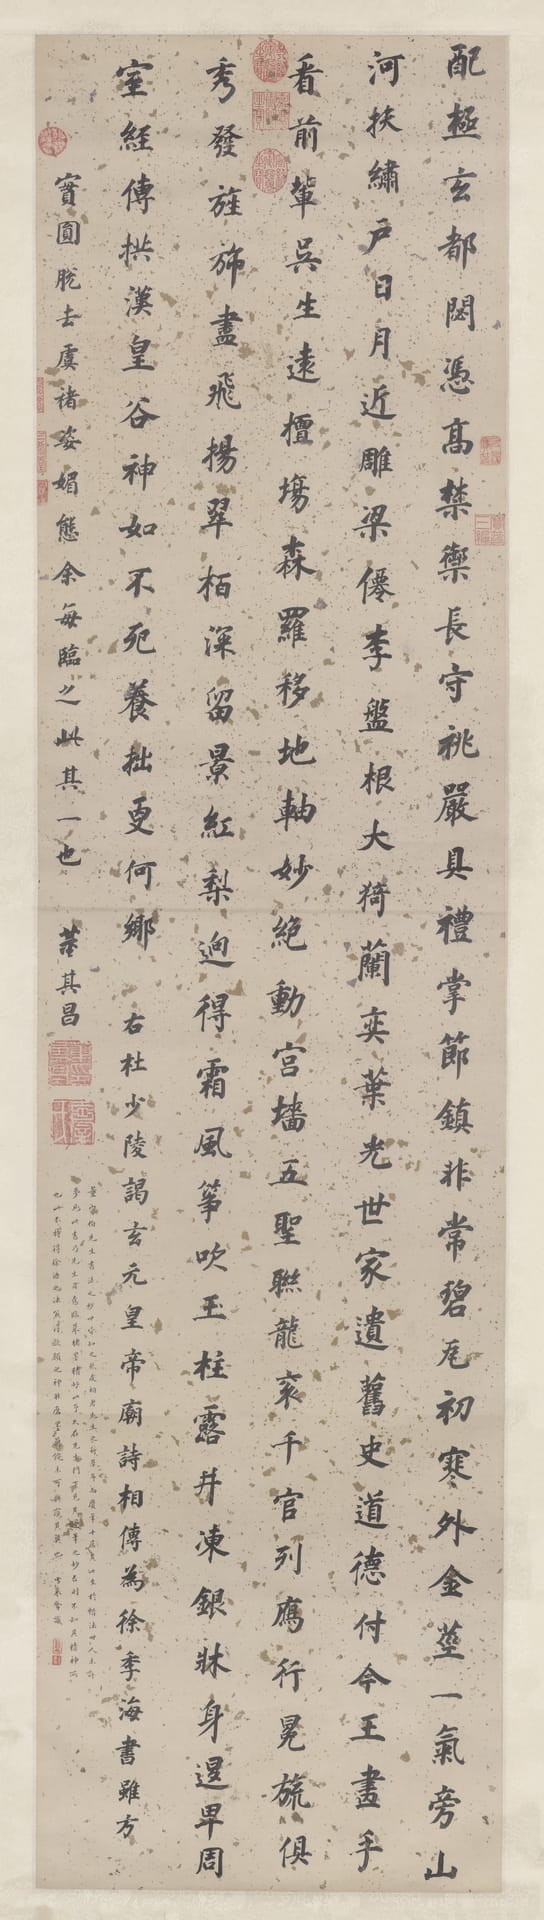 配極玄都閟憑高禁籞長守祧嚴具禮掌節鎮非常碧瓦初寒外金莖一氣旁山
河扶繡戶日月近雕梁僊李盤根大猗蘭奕葉光世家遺舊史道德付今王畫手
看前輩吳生遠擅場森羅移地軸妙絕動宮墻五聖聯龍袞千官列鴈行冕旒俱
秀發旌旆盡飛揚翠栢深留景紅梨迥得霜風箏吹玉柱露井凍銀牀身退卑周
室經傳拱漢皇谷神如不死養拙更何鄉 右杜少陵謁玄元皇帝廟詩相傳為徐季海書雖方
實圓脫去虞褚姿媚態余每臨之此其一也 董其昌